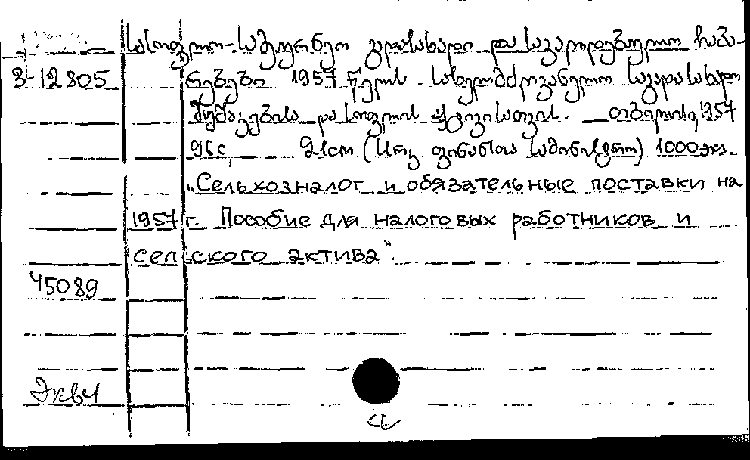 სასოფლო-სამეურნეო გადასახადი და სავალდებულო ჩაბა-
3-12805 რებები 1957 წელს. სახელმძღვანელო საგადასახადო
მუშაკებისა და სოფლის აქტივისათვის. თბილისი, 1957
95 с. 21სმ (სსრკ ფინანსთა სამინისტრო) 1000
"Сельхозналог и обязательные поставки на
1957 г. Пособие для налоговых работников и
сельского актива".
45089